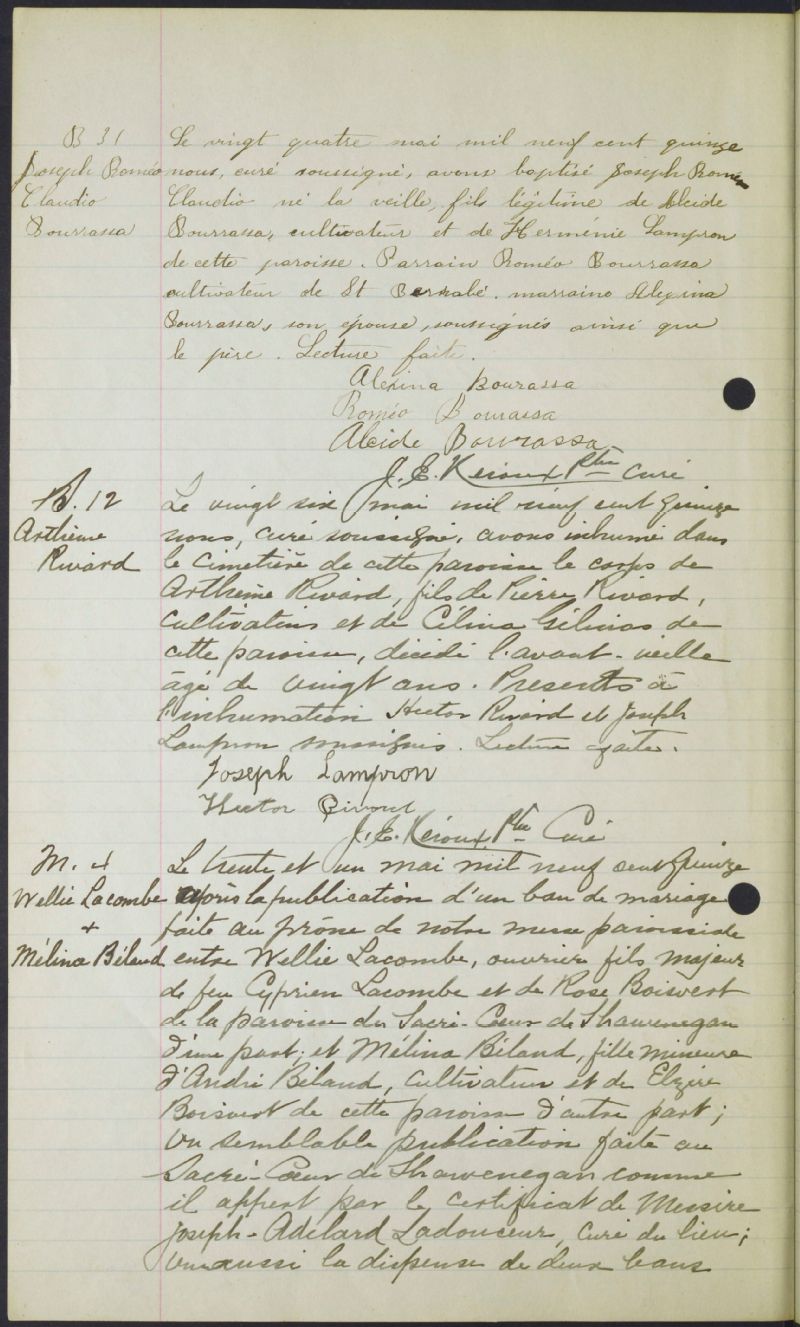 B 31
Joseph Roméo
Claudio
Bourrassa
Le vingt quatre mai mil neuf cent quinze
nous, curé soussigné, avons baptisé Joseph Roméo
Claudio né la veille, fils légitime de Alcide
Bourrassa, cultivateur et de Herménie Lampron
de cette paroisse. Parrain Roméo Bourrassa
cultivateur de St Barnabé. marraine Alexina
Bourrassa, son épouse, soussignés ainsi que
le père. Lecture faite.
Alexina Bourassa
Roméo Bourassa
Alcide Bourrassa
J. E. Héroux Ptre Curé
S. 12
Arthème
Rivard
Le vingt six mai mil neuf cent quinze
nous, curé soussigné, avons inhumé dans
le cimetière de cette paroisse le corps de
Arthème Rivard, fils de Pierre Rivard,
cultivateur et de Célina Gélinas de
cette paroisse, décédé l'avant-veille
âgé de vingt ans. Presents à
l'inhumation Hector Rivard et Joseph
Lampron soussignés. Lecture faite.
Joseph Lampron
Hector Rivard
J. E. Héroux Ptre Curé
M. 4
Wellie Lacombe
+
Mélina Béland
Le trente et un mai mil neuf cent quinze
après la publication d'un ban de mariage
faite au prône de notre messe paroissiale
entre Wellie Lacombe, ouvrier fils majeur
de feu Cyprien Lacombe et de Rose Boisvert
de la paroisse du Sacré-Cœur de Shawenegan
d'une part; et Mélina Béland, fille mineure
d'André Béland, cultivateur et de Elzire
Boisvert de cette paroisse d'autre part;
Vu semblable publication faite au
Sacré-Cœur de Shawenegan comme
il appert par le certificat de Messire
Joseph-Adélard Ladouceur, curé du lieu;
Vu aussi la dispense de deux bans